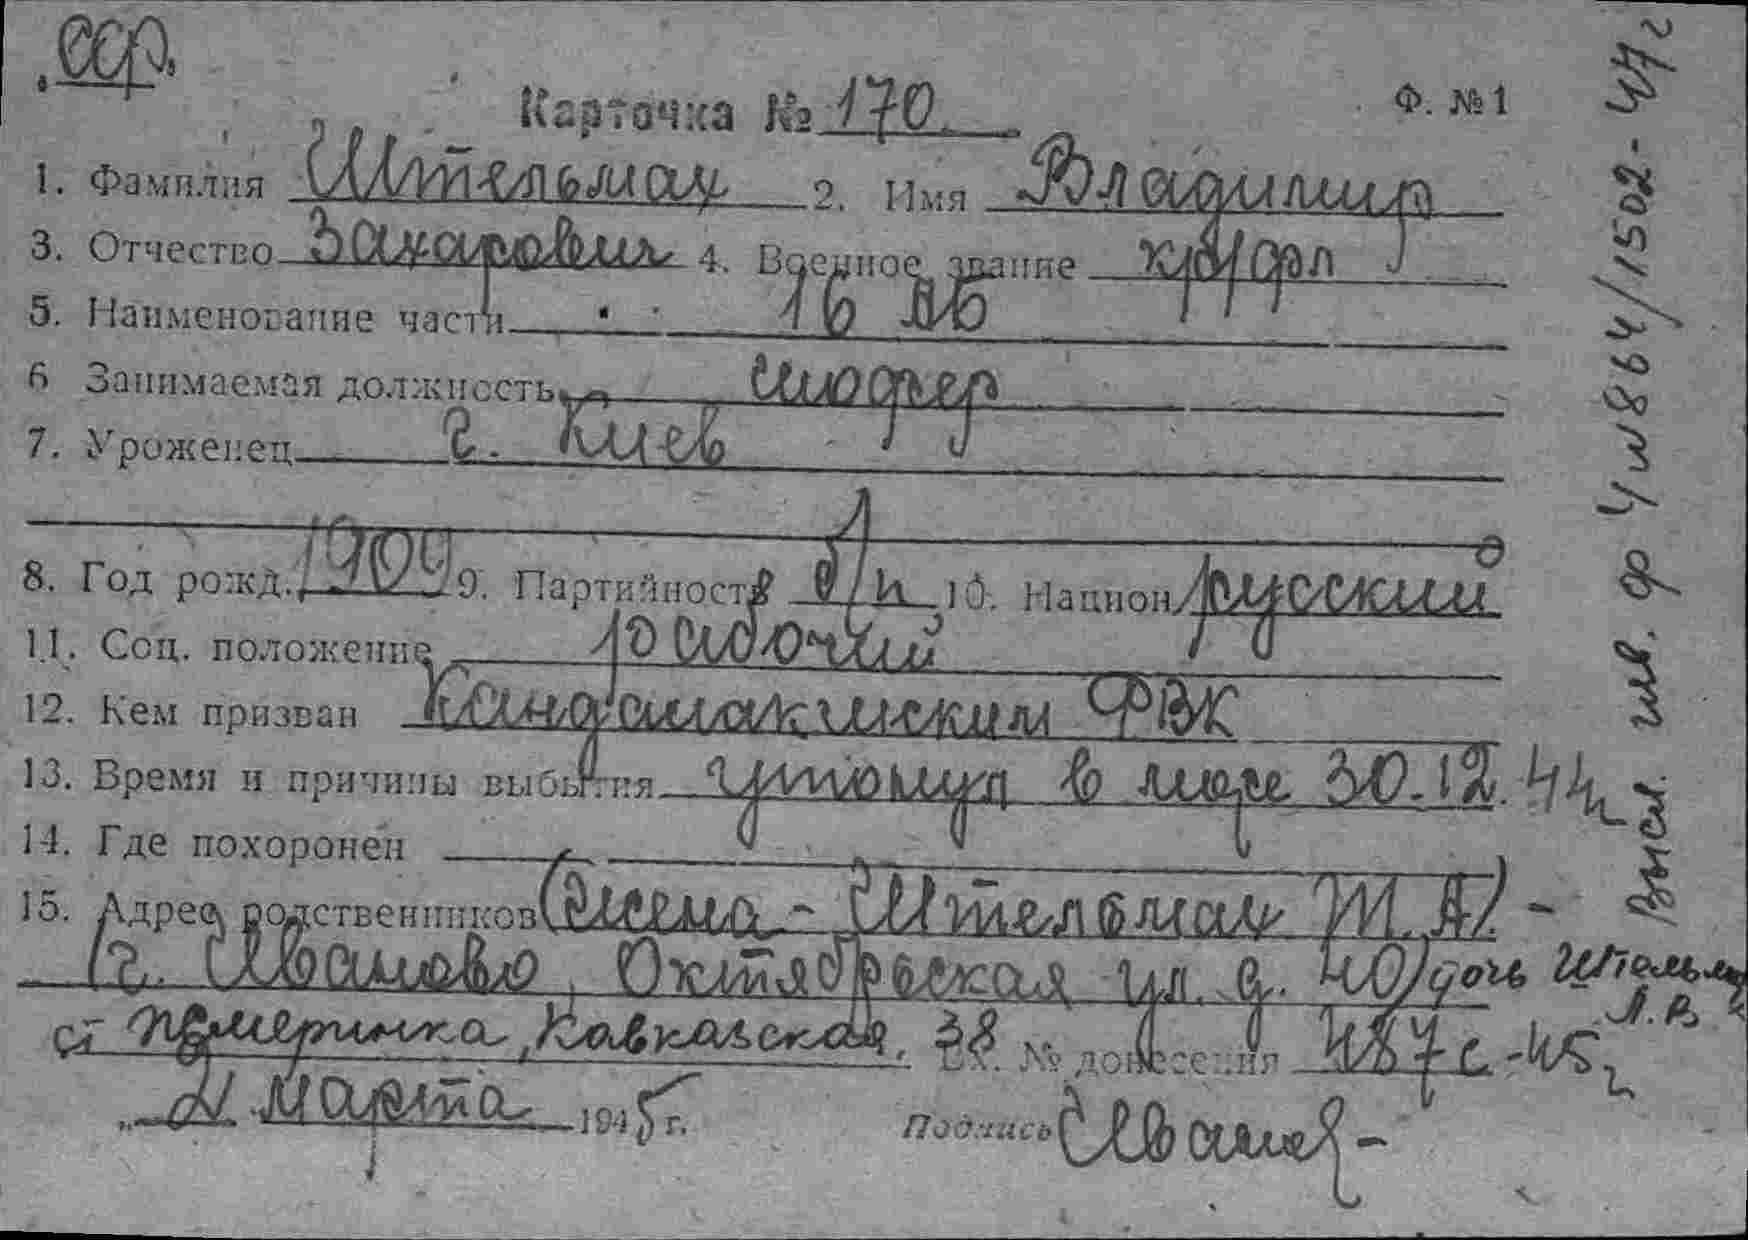 ССР.
Карточка № 170. Ф. №1
1. Фамилия Штельмах 2. Имя Владимир
3. Отчество Захарович 4. Военное звание кр/фл
5. Наименование части 16
6 Занимаемая должность шофер
7. Уроженец г. Киев
8. Год рожд. 1909 9. Партийность б/п 10. Национ. русский
11. Соц. положение рабочий
12. Кем призван Кандалакшским ФВК
13. Время и причины выбытия утонул в море 30.12.44г
14. Где похоронен
15. Адрес родственников (жена - Штельмах М. А). -
(г. Иваново, Октябрьская ул. д. 40) дочь Штельмах
Л. В
ст Жмеринка, Кавказская, 38 Вх. № донесения 487с -45г
" 21 " марта 1945 г. Подпись Иванов -
Высл. изв. ф 4 № 864/1502-47г